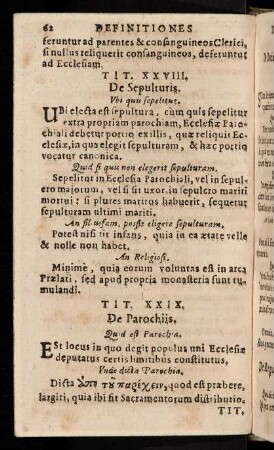 62 DEFINITIONES
feruntur ad parentes & consanguineos Clerici,
si nullus reliquerit consanguineos, deferuntur
ad Ecclesiam.
TIT. XXVIII.
De Sepulturis.
Vbi quis sepelitur.
UBi electa est sepultura, cùm quis sepelitur
extra propriam parochiam, Ecclesiæ Paro-
chiali debetur portio ex illis, quæ reliquit Ec-
clesiæ, in qua elegit sepulturam, & hæc portio
vocatur canonica.
Quid si quis non elegerit sepulturam.
Sepelitur in Ecclesia Parochiali, vel in sepul-
cro majorum, vel si sit uxor in sepulcro mariti
mortui: si plures maritos habuerit, sequetur
sepulturam ultimi mariti.
An fil. infam. possit eligere sepulturam.
Potest nisi sit infans, quia in ea ætate velle
& nolle non habet.
An Religiosi.
Minimè, quia eorum voluntas est in arca
Prælati, sed apud propria monasteria sunt tu-
mulandi.
TIT. XXIX.
De Parochijs.
Quid est Parochia.
ESt locus in quo degit populus uni Ecclesiæ
deputatus certis limitibus constitutus.
Vnde dicta Parochia.
Dicta ὑπὸ τοῦ παρέχειν, quod est præbere,
largiri, quia ibi fit Sacramentorum distributio.
TIT.